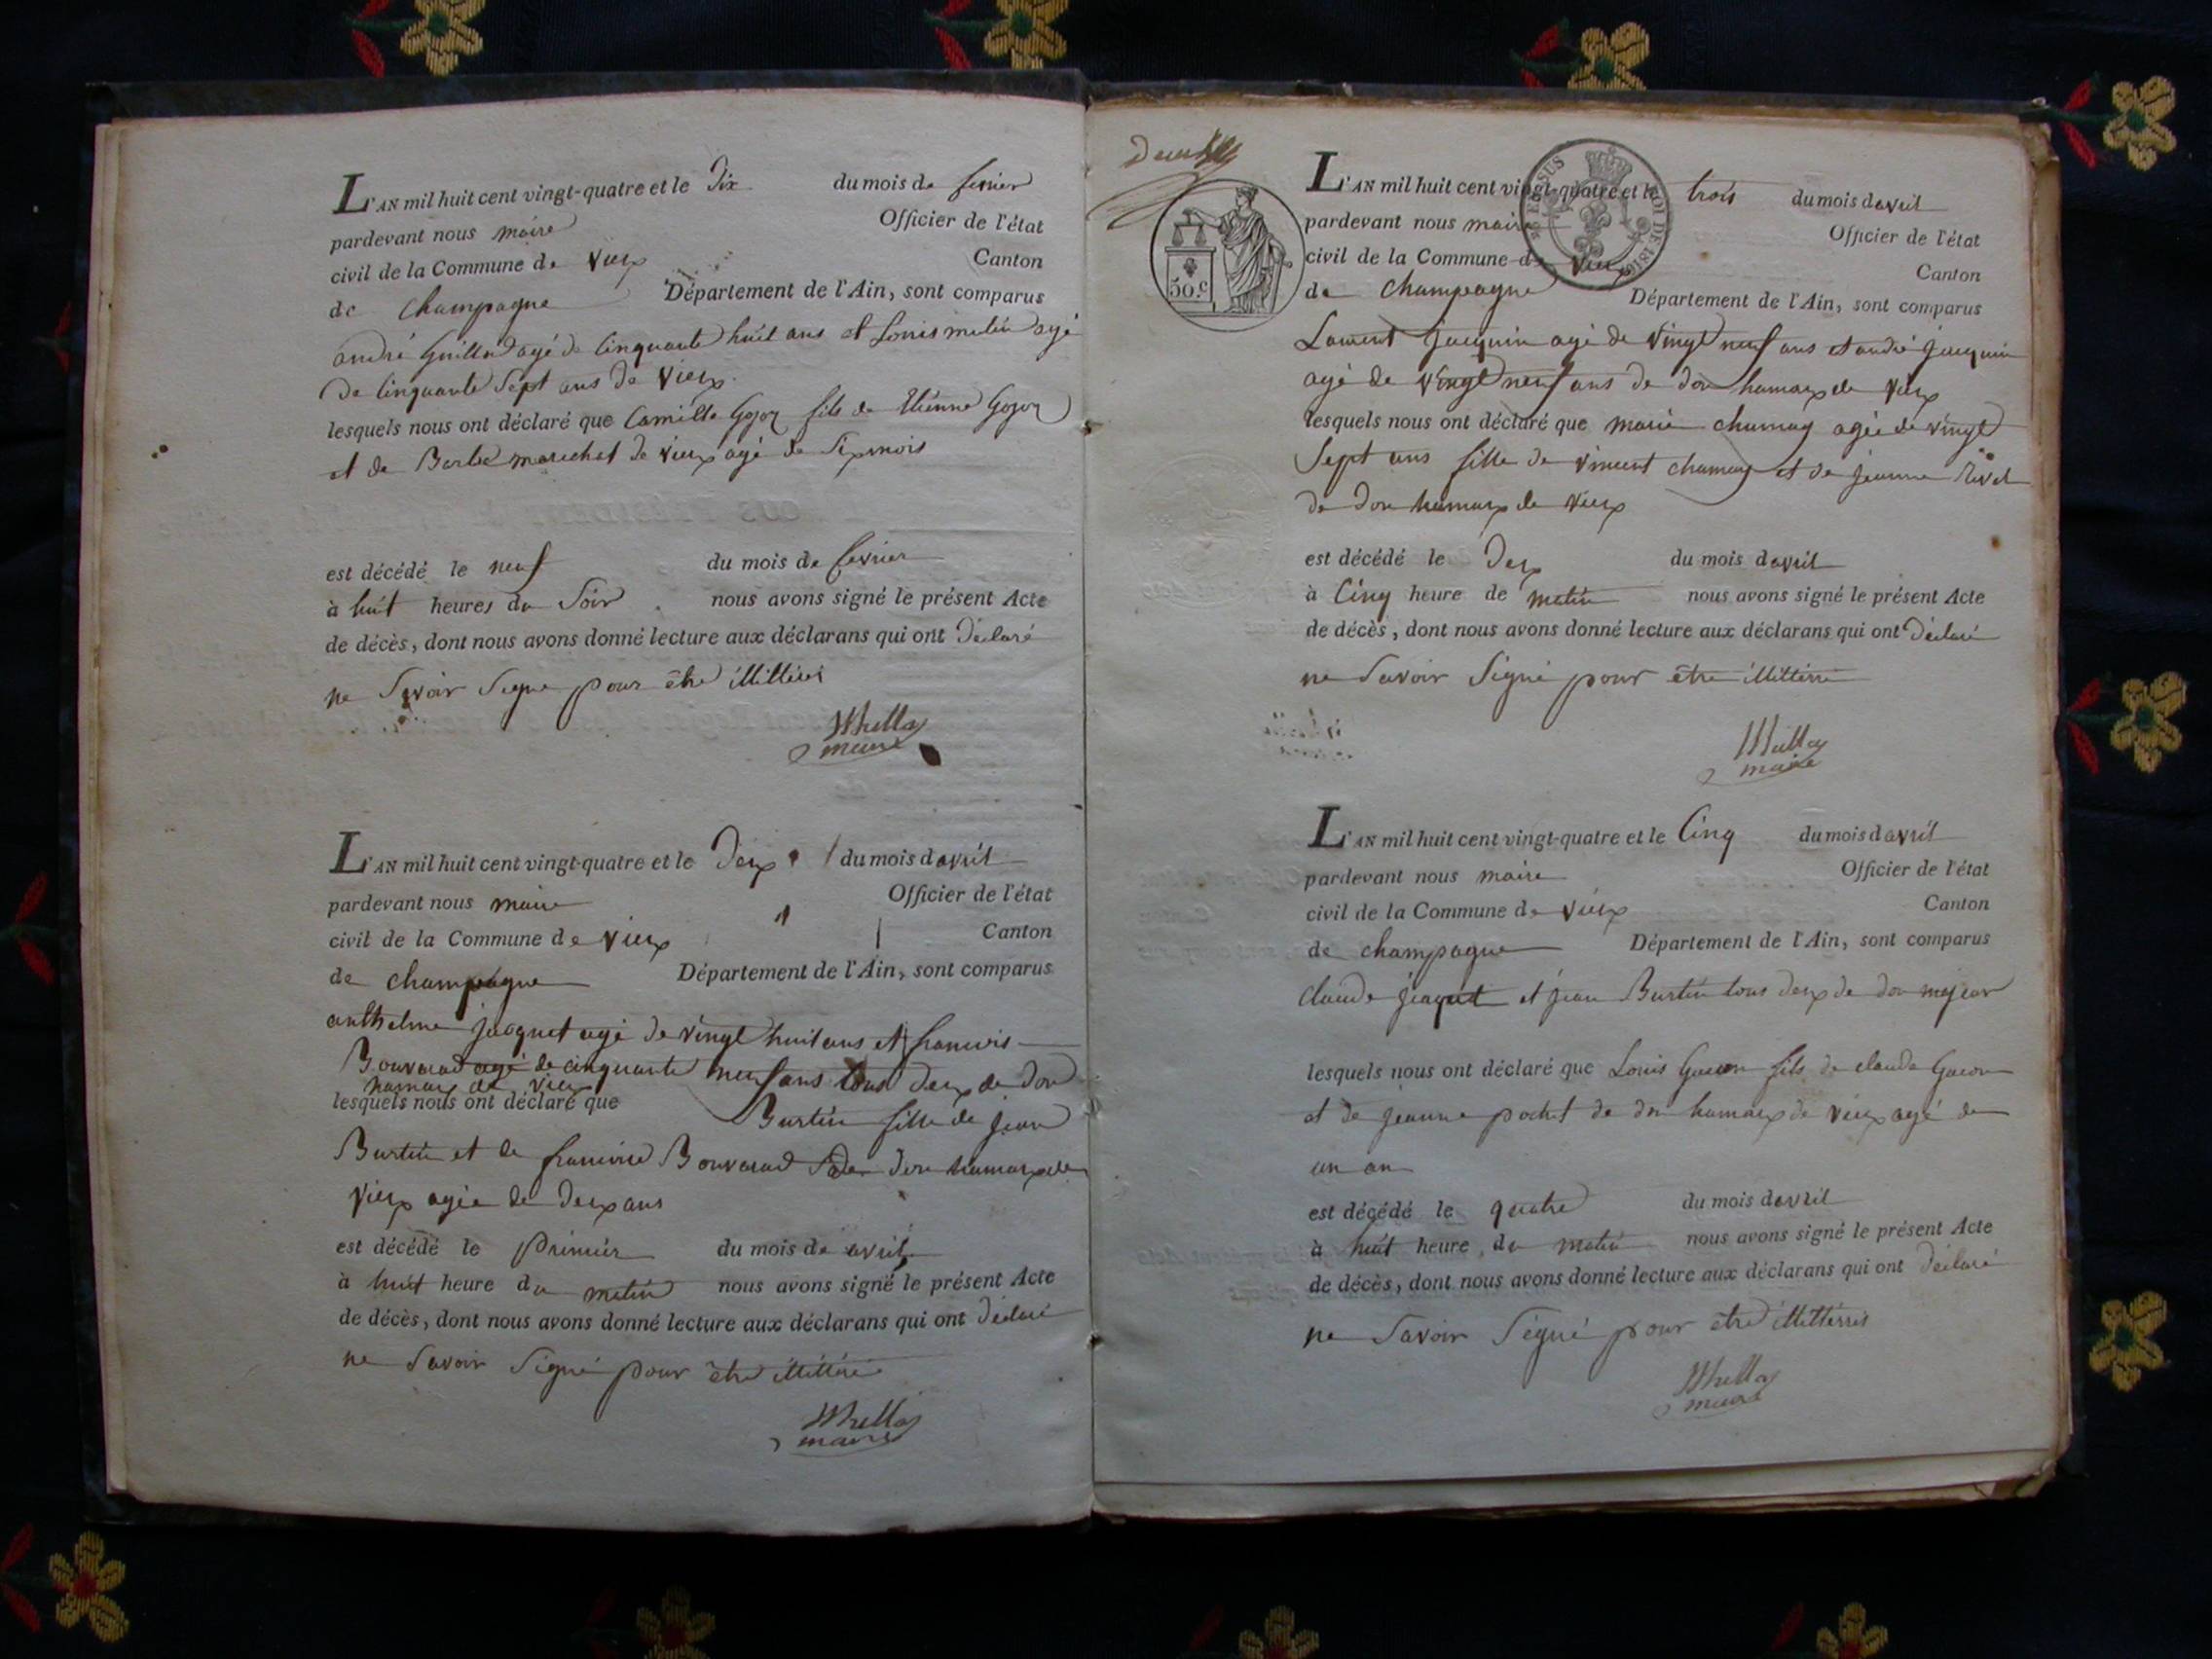 L'AN mil huit cent vingt-quatre et le Dix du mois de fevrier
pardevant nous maire Officier de l'état
civil de la Commune de Vieux Canton
de Champagne Département de l'Ain, sont comparus
andré Guillod agé de Cinquante huit ans et Louis metin agé
De Cinquante Sept ans De Vieux
lesquels nous ont déclaré que Camille Gojoz fils de Etienne Gojoz
et de Barbe marechat de vieux agé de Six mois
est décédé le neuf du mois de fevrier
à huit heures du Soir nous avons signé le présent Acte
de décès, dont nous avons donné lecture aux déclarans qui ont Déclaré
ne Savoir Signe pour être illitteré
maire
L'AN mil huit cent vingt-quatre et le Deux du mois d avril
pardevant nous maire Officier de l'état
civil de la Commune de Vieux Canton
de champagne Département de l'Ain, sont comparus
anthelme jacquet agé de vingt huit ans et francois
Bouvard agé de cinquante neuf ans tous deux de Don
hamaux de vieux
lesquels nous ont déclaré que Burtin fille de jean
Burtin et de francoise Bouvard de Don hamaux de
Vieux agée de Deux ans
est décédé le Primier du mois de avril
à huit heure du matin nous avons signé le présent Acte
de décès, dont nous avons donné lecture aux déclarans qui ont Déclaré
ne Savoir Signé pour être illittéré
maire
50.C
L'AN mil huit cent vingt-quatre et le trois du mois d avril
pardevant nous maire Officier de l'état
civil de la Commune de Vieux Canton
de Champagne Département de l'Ain, sont comparus
Laurent Jacquin agé de Vingt neuf ans et andré jacquin
agé de Vingt neuf ans de don hamaux de Vieux
lesquels nous ont déclaré que marie chamay agée de vingt
Sept ans fille de vincent chamay et de jeanne
de Don hamaux de Vieux
est décédé le Deux du mois d avril
à Cinq heure de matin nous avons signé le présent Acte
de décès, dont nous avons donné lecture aux déclarans qui ont Déclaré
ne Savoir Signé pour être illitterré
maire
L'AN mil huit cent vingt-quatre et le Cinq du mois d avril
pardevant nous maire Officier de l'état
civil de la Commune de Vieux Canton
de champagne Département de l'Ain, sont comparus
claude jacquet et jean Burtin tous deux de don majeur
lesquels nous ont déclaré que Louis Gacon fils de claude Gacon
et de jeanne pochet de don hamaux de vieux agé de
un an
est décédé le quatre du mois d avril
à huit heure du matin nous avons signé le présent Acte
de décès, dont nous avons donné lecture aux déclarans qui ont Déclaré
ne Savoir Signé pour être illitterrés
maire